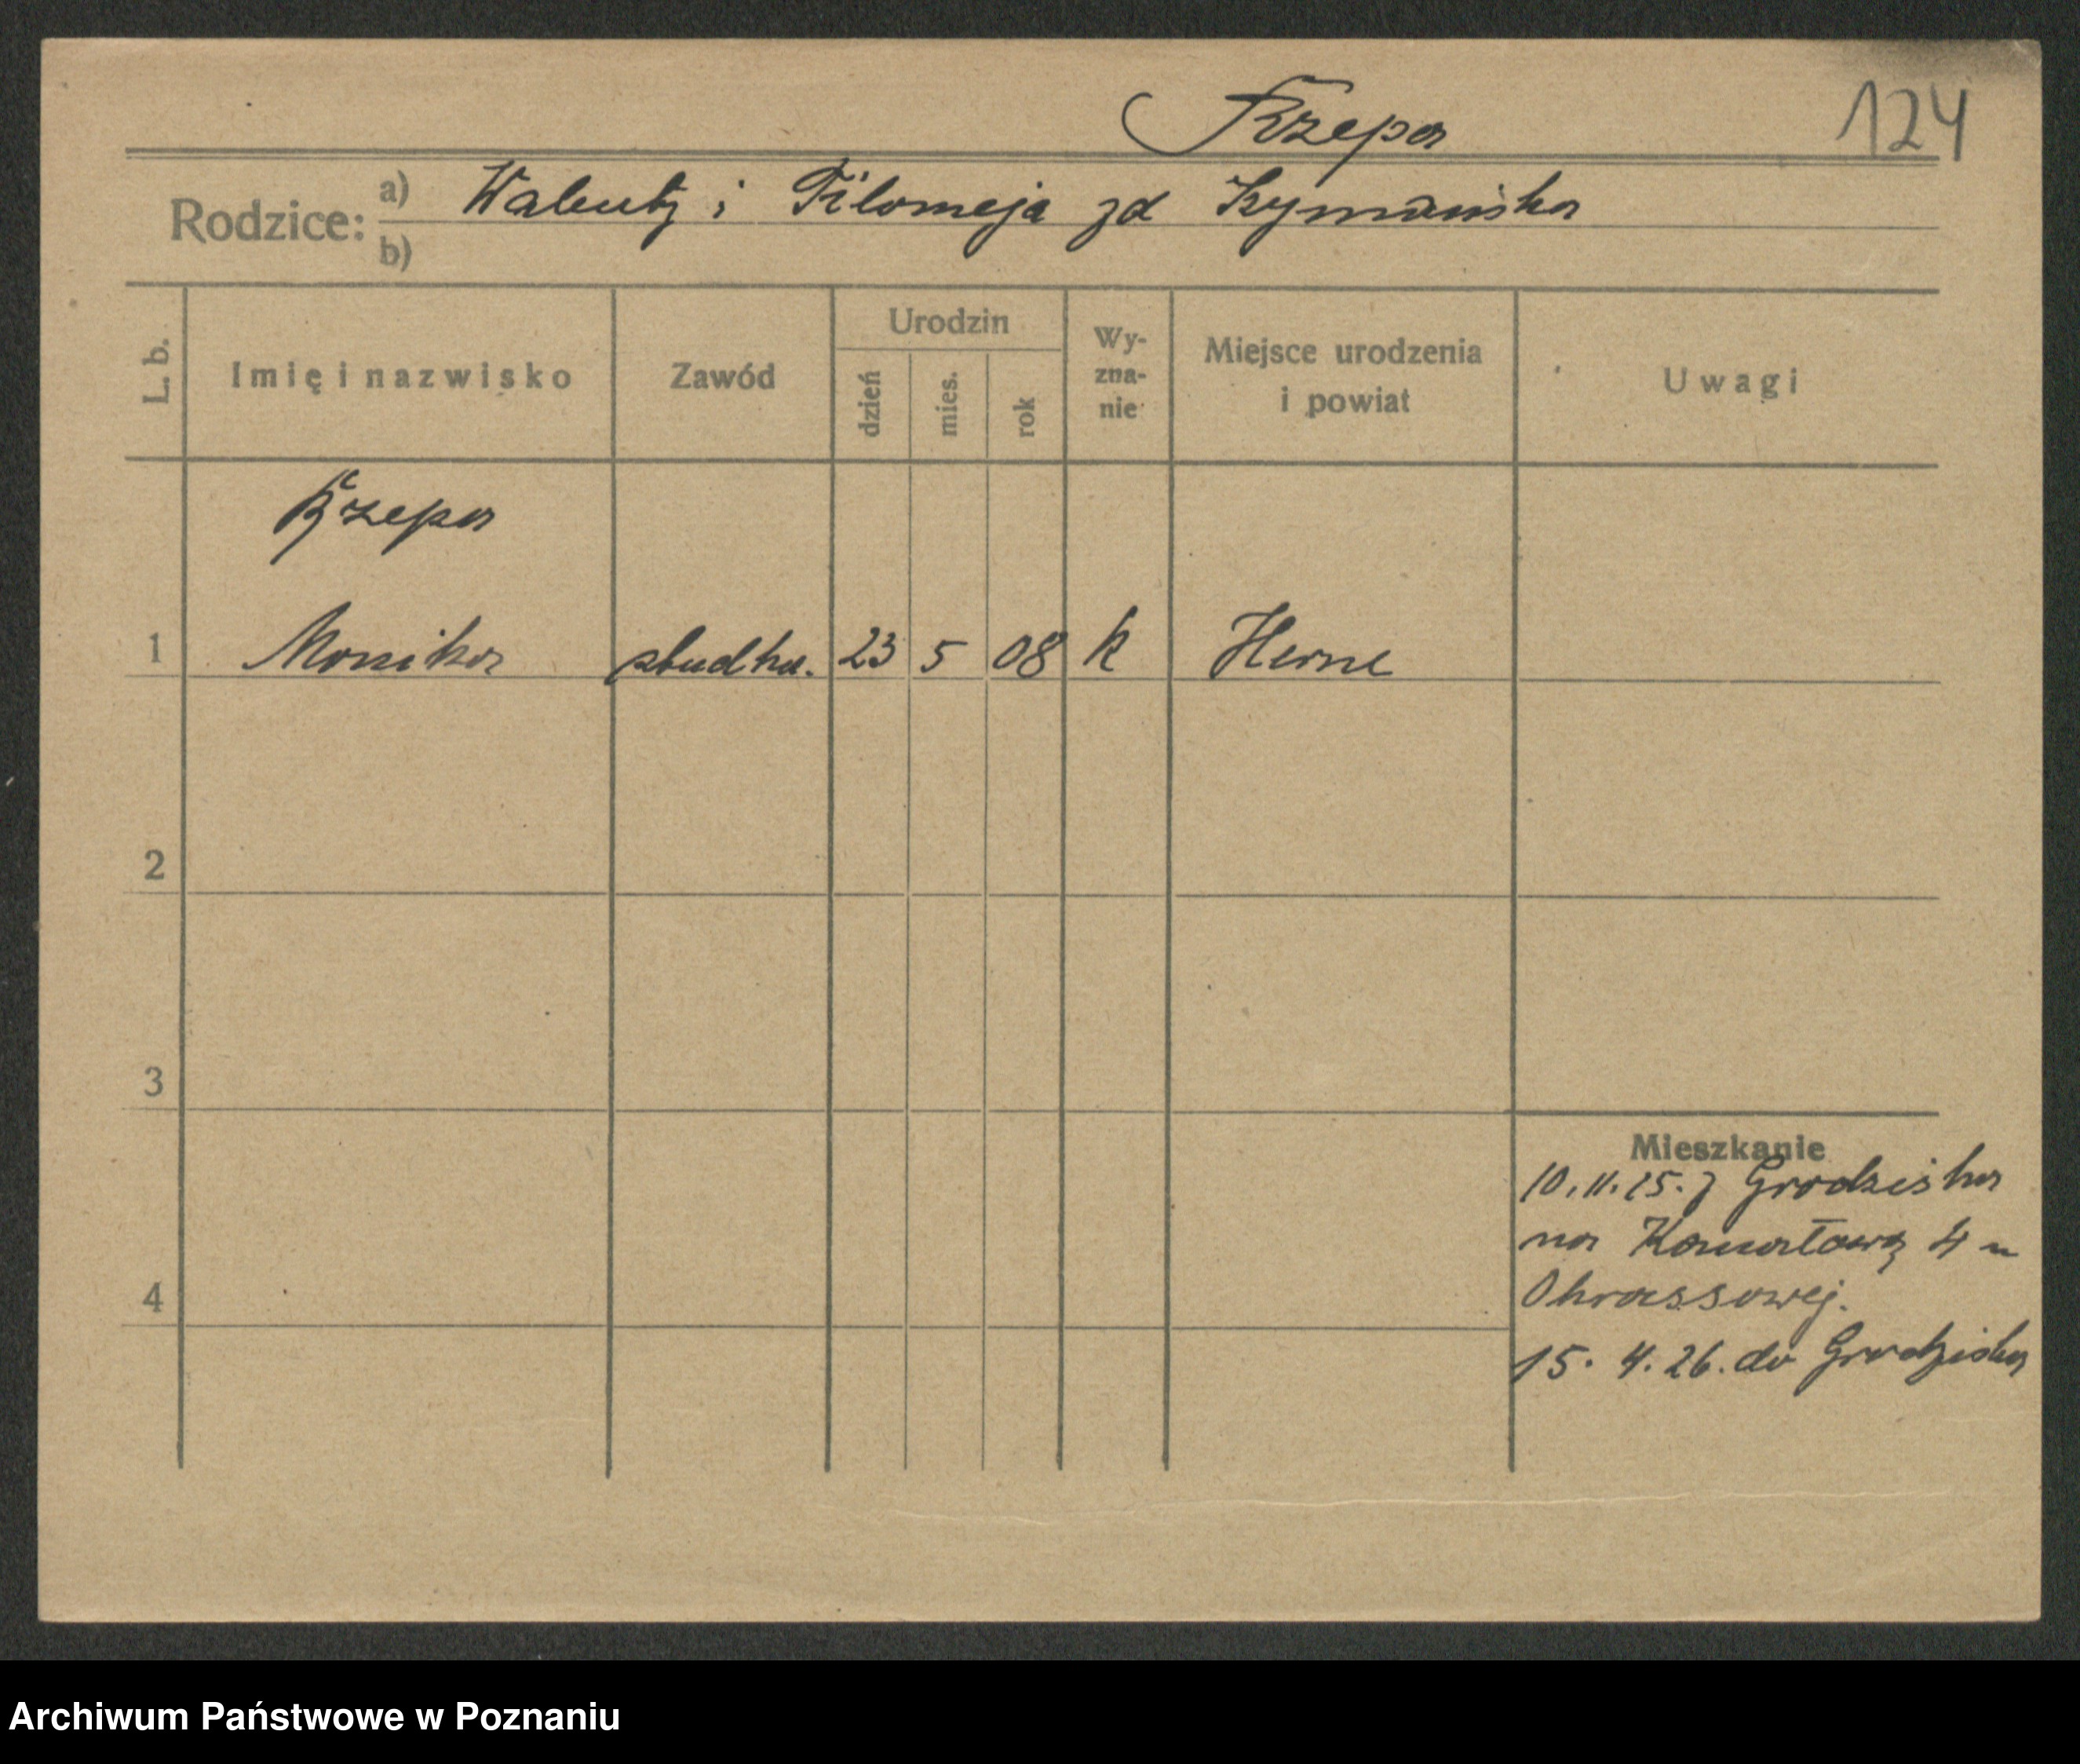 Rzepa
124
Rodzice: a) Walenty i Filomeja zd Szymańska
b)
L. b. Imię i nazwisko Zawód Urodzin dzień mies. rok Wy-zna-nie Miejsce urodzenia i powiat Uwagi
Rzepa
1 Monika 23 5 08 k Herne
2
3
Mieszkanie
10.11.25. z Grodziska
na 4 u
4
15. 4. 26. do Grodziska
Archiwum Państwowe w Poznaniu